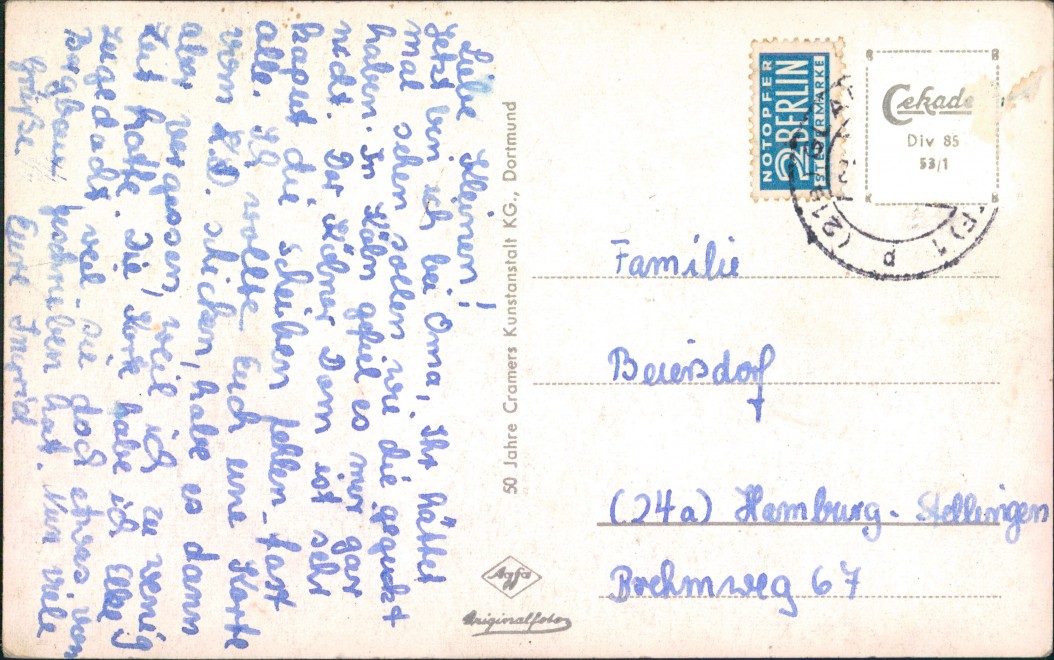 Liebe Kleinen!
Jetzt bin ich bei Oma, Ihr hättet
mal sehen sollen wie die geguckt
haben. In Köln gefiel es mir gar
nicht. Der Kölner Dom ist sehr
kaput die scheiben fehlen fast
alle. Ich wollte Euch eine Karte
vom schicken, habe es dann
aber vergessen, weil ich zu wenig
Zeit hatte. Die Karte habe ich Elke
zugedacht weil sie doch etwas von
Bergbau geschrieben hat. Nun viele
Grüße Eure Ingrid
50 Jahre Cramers Kunstanstalt KG., Dortmund
Agfa
Originalfoto
NOTOPFER
2 BERLIN
STEUERMARKE
Cekade
Div 85
53/1
(21b)
1
d
Familie
Beiersdorf
(24a) Hamburg-Stellingen
Brehmweg 67